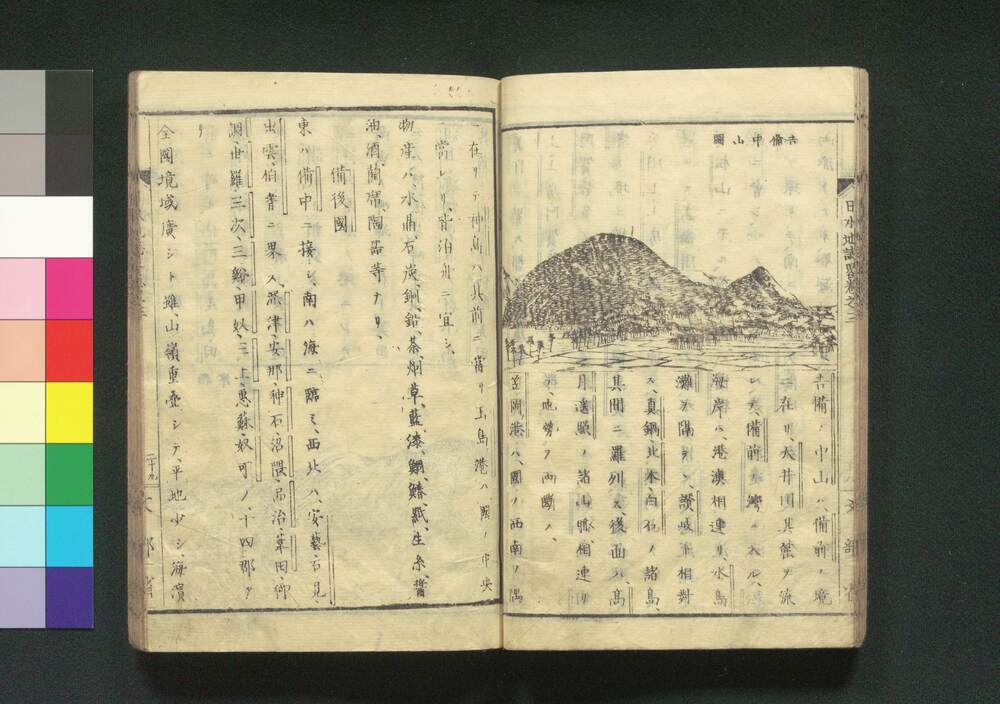 吉備中山圖
日本地誌畧卷之三
吉備ノ中山ハ、備前ノ境
ニ在リ、大井川其麓ヲ流
レテ、備前ノ海灣ニ入ル、
海岸ハ、港澳相連リ、水島
灘ヲ隔テヽ、讃岐ト相對
ス、眞鍋、北木、白石ノ諸島、
其間ニ羅列ス、後面ハ、高
月、遙照ノ諸山脈、相連リ
テ、地勢ヲ両斷ス、
笠岡港ハ、國ノ西南ノ隅
ニ在リテ、神島ハ其前ニ當リ、玉島港ハ、國ノ中央
ニ當レリ、皆泊舟ニ宜シ、
物産ハ、水晶、石炭、銅、鉛、茶、烟草、藍、漆、鯛、鰆、紙、生糸、醤
油、酒、藺席、陶器等ナリ、
備後國
東ハ備中ニ接シ、南ハ海ニ臨ミ、西北ハ、安藝、石見、
出雲、伯耆ニ界ス、深津、安那、神石、沼隈、品治、葦田、御
調、世羅、三次、三谿、甲奴、三上、惠蘇、奴可ノ、十四郡ヲ
全國境域廣シト雖、山嶺重疊シテ、平地少シ、海濱
二十九
文部省